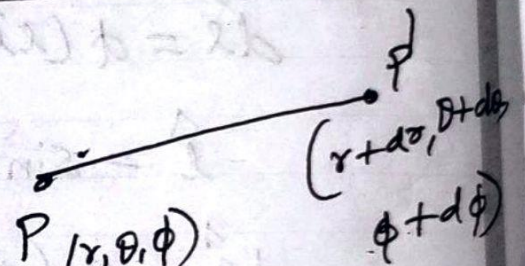 P'
(r+dr, θ+dθ,
φ+dφ)
P (r, θ, φ)